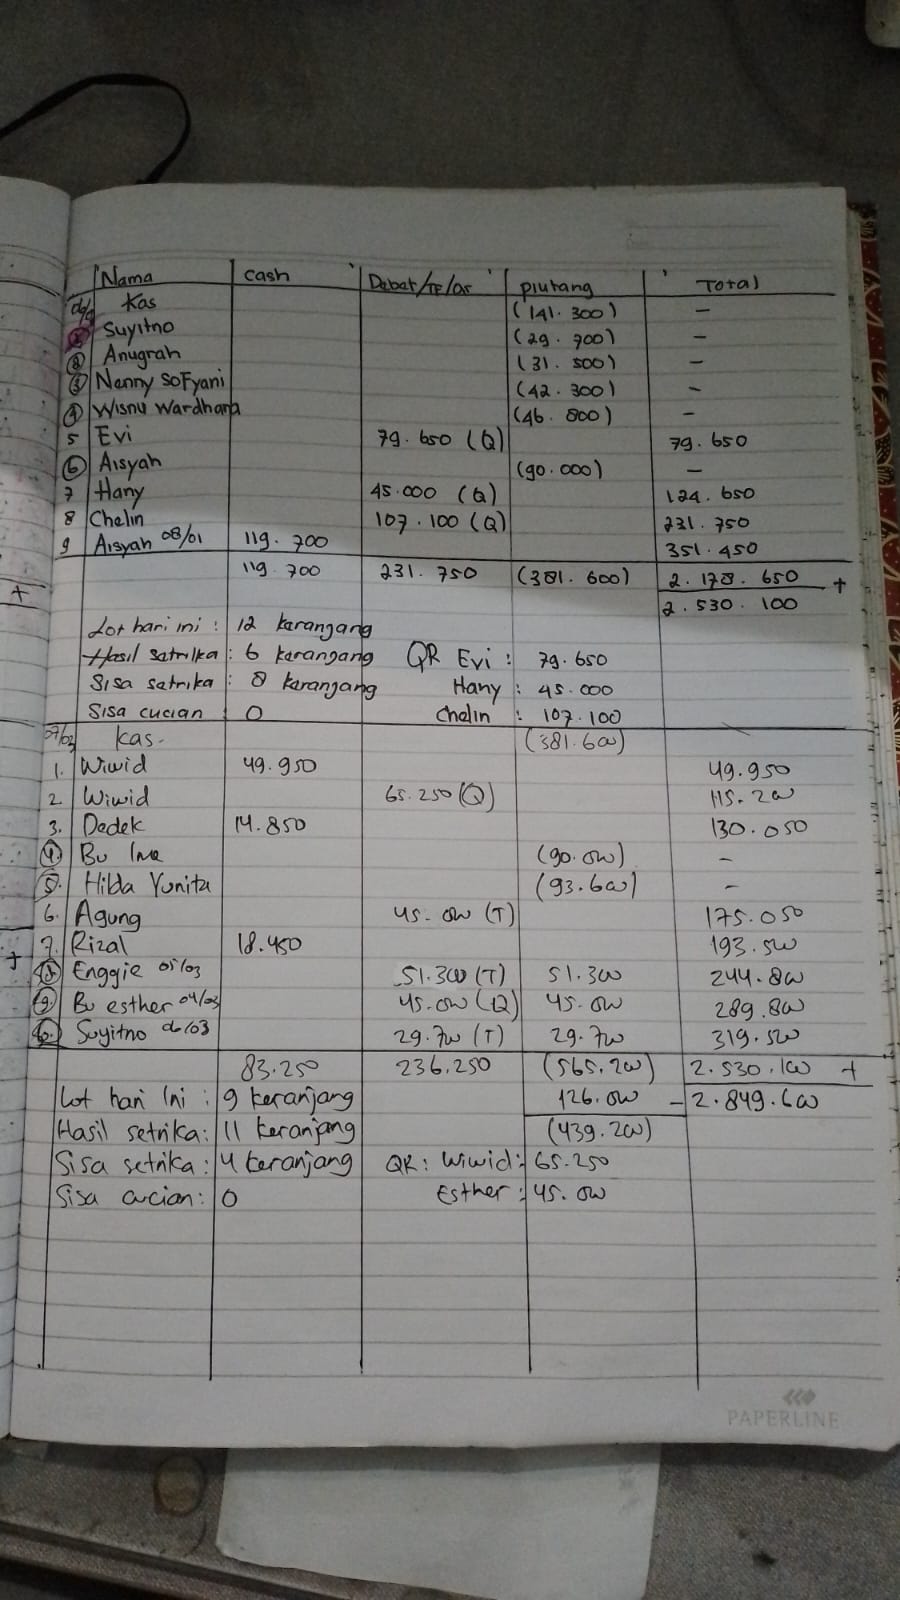 Nama cash Debet/TF/Qr piutang Total
06/3 Kas (141.300) -
1 Suyitno (29.700) -
2 Anugrah (31.500) -
3 Nenny Sofyani (42.300) -
4 Wisnu Wardhana (46.800) -
5 Evi 79.650 (Q) 79.650
6 Aisyah (90.000) -
7 Hany 45.000 (Q) 124.650
8 Chelin 107.100 (Q) 231.750
9 Aisyah 08/01 119.700 351.450
119.700 231.750 (381.600) 2.178.650 +
2.530.100
Lot hari ini : 12 karangang
Hasil satrika : 6 karangang QR Evi : 79.650
Sisa satrika : 8 karangang Hany : 45.000
Sisa cucian : 0 Chelin : 107.100
07/03 Kas. (381.600)
1. Wiwid 49.950 49.950
2. Wiwid 65.250 (Q) 115.200
3. Dedek 14.850 130.050
4. Bu Ina (90.000) -
5. Hilda Yunita (93.600) -
6. Agung 45.000 (T) 175.050
7. Rizal 18.450 193.500
8. Enggie 05/03 51.300 (T) 51.300 244.800
9. Bu esther 04/03 45.000 (Q) 45.000 289.800
10. Suyitno 06/03 29.700 (T) 29.700 319.500
83.250 236.250 (565.200) 2.530.100 +
Lot hari ini : 9 keranjang 126.000 - 2.849.600
Hasil setrika : 11 keranjang (439.200)
Sisa setrika : 4 keranjang QR : Wiwid : 65.250
Sisa cucian : 0 Esther : 45.000
PAPERLINE